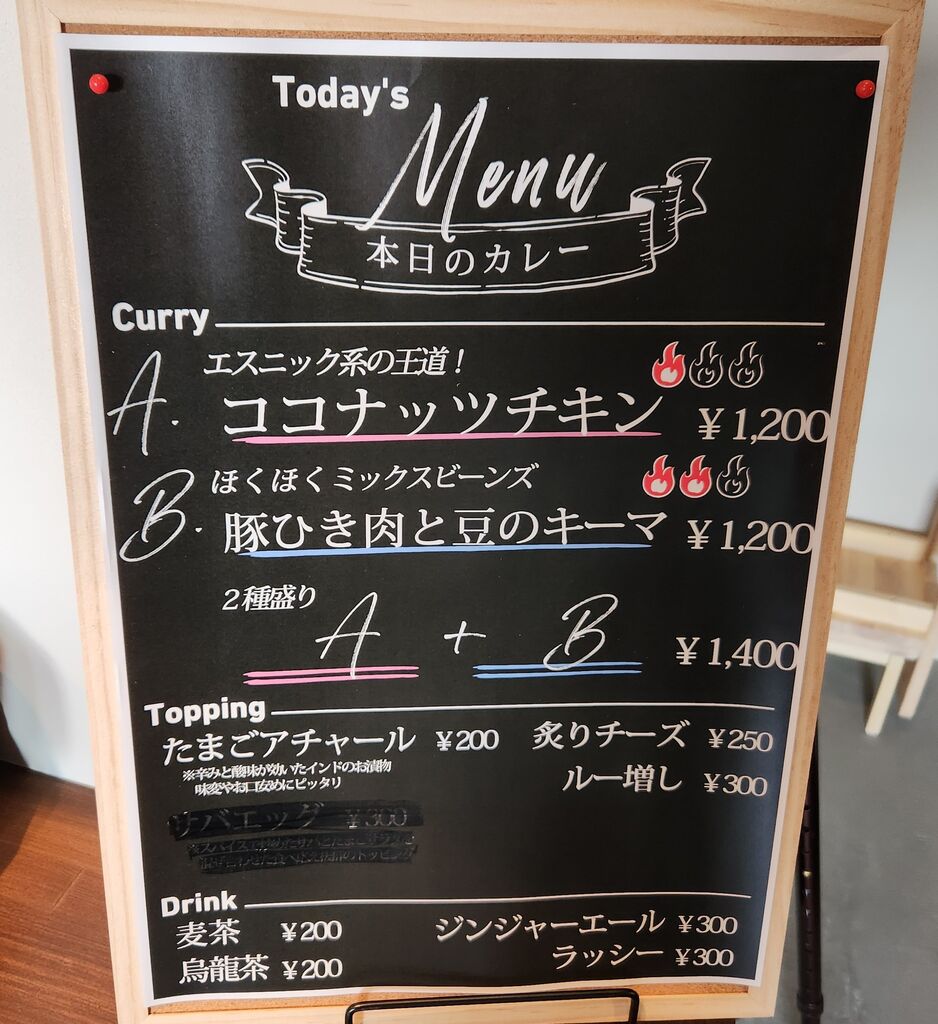 Today's
Menu
本日のカレー
Curry
A. エスニック系の王道！
ココナッツチキン ￥1,200
B. ほくほくミックスビーンズ
豚ひき肉と豆のキーマ ￥1,200
２種盛り
A + B ￥1,400
Topping
たまごアチャール ￥200 炙りチーズ ￥250
※辛みと酸味が効いたインドのお漬物
味変やお口安めにピッタリ
ルー増し ￥300
サバエッグ ￥300
Drink
麦茶 ￥200 ジンジャーエール ￥300
烏龍茶 ￥200 ラッシー ￥300